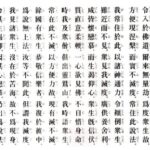 令入於佛道爾來無量劫為度眾生故
方便現涅槃而實不滅度常住此說法
我常住於此以諸神通力令顛倒眾生
雖近而不見眾見我滅度廣供養舍利
咸皆懷戀慕而生渴仰心眾生既信伏
質直意柔軟一心欲見佛不自惜身命
時我及眾僧俱出靈鷲山我時語眾生
常在此不滅以方便力故現有滅不滅
餘國有眾生恭敬信樂者我復於彼中
為說無上法汝等不聞此但謂我滅度
我見諸眾生沒在於苦惱故不為現身